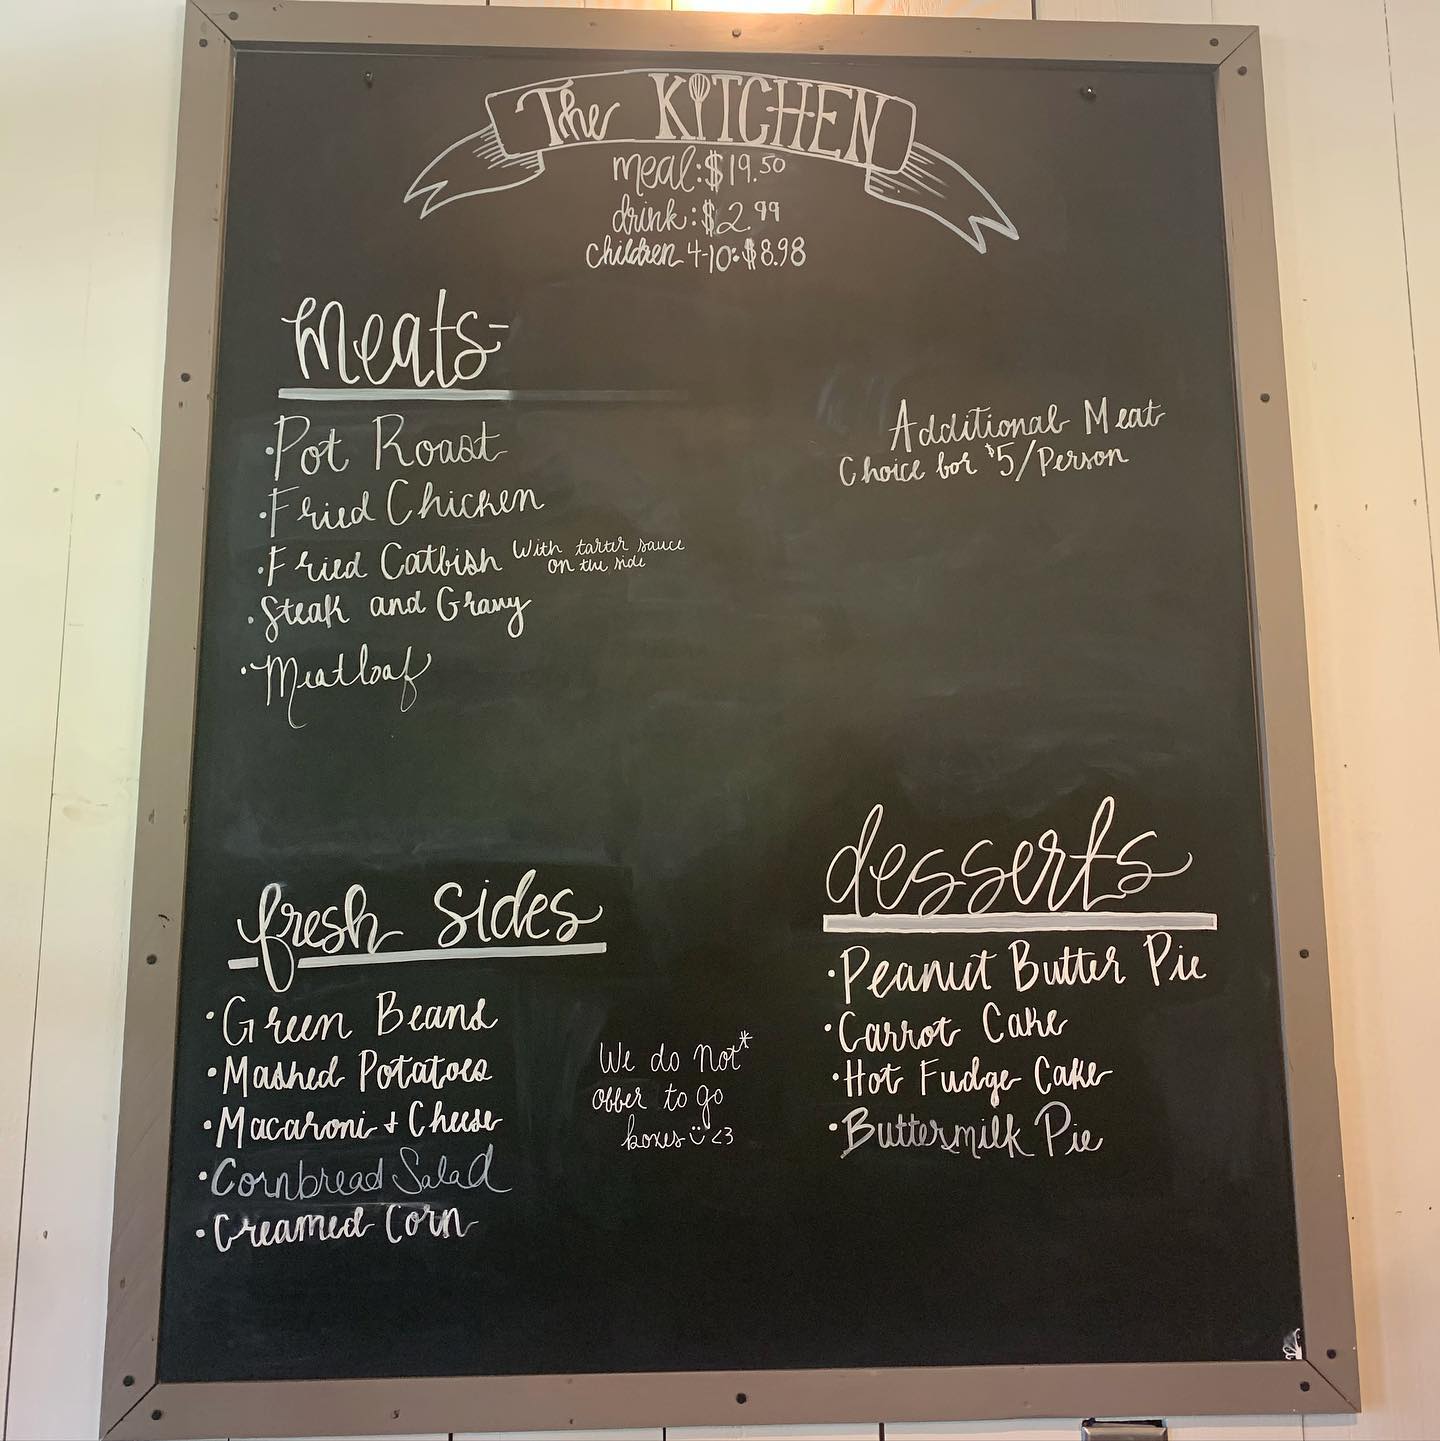 The KITCHEN
meal: $19.50
drink: $2.99
Children 4-10: $8.98
Meats-
Additional Meat
Choice for $5/Person
·Pot Roast
·Fried Chicken
·Fried Catfish With tarter sauce
on the side
·Steak and Gravy
·Meatloaf
fresh sides
·Green Beans
·Mashed Potatoes
·Macaroni + Cheese
·Cornbread Salad
·Creamed Corn
We do not*
offer to go
boxes ü <3
desserts
·Peanut Butter Pie
·Carrot Cake
·Hot Fudge Cake
·Buttermilk Pie